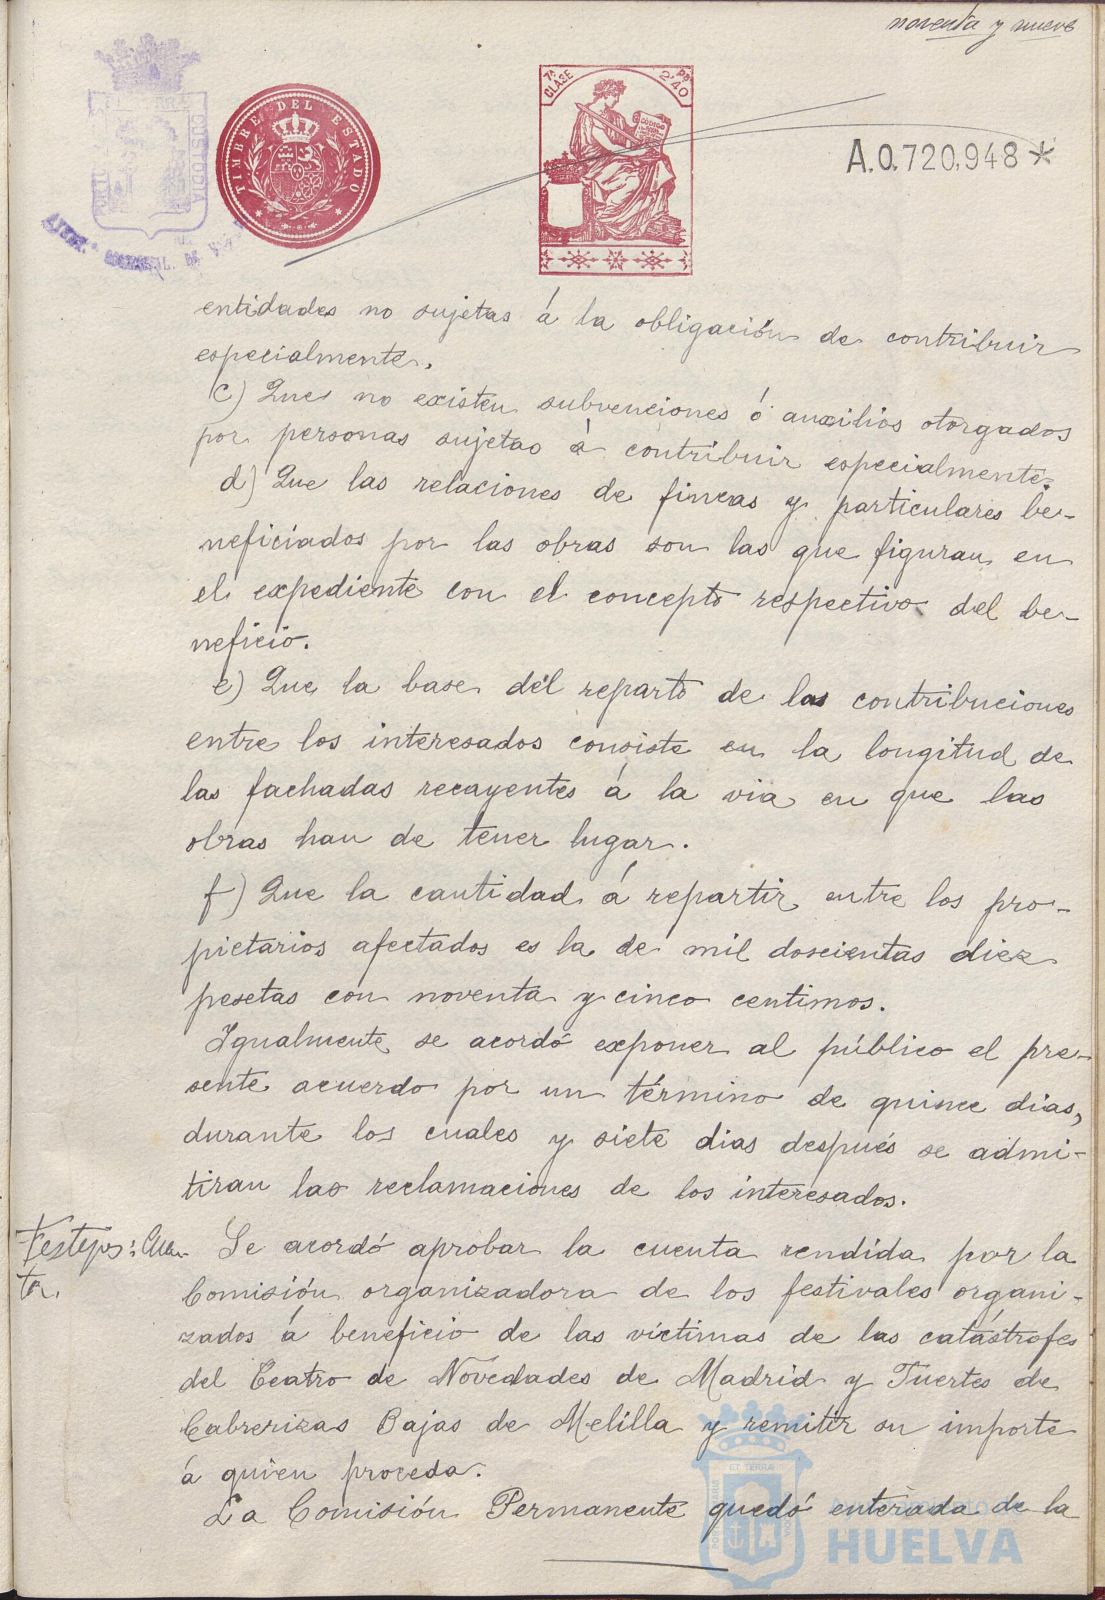 noventa y nueve
TIMBRE DEL ESTADO
CUSTODIA
7ª CLASE
2'40 Pts
CODIGO
A.0.720,948*
entidades no sujetas á la obligación de contribuir
especialmente.
c) Que no existen subvenciones ó auxilios otorgados
por personas sujetas á contribuir especialmente.
d) Que las relaciones de fincas y particulares be-
neficiados por las obras son las que figuran en
el expediente con el concepto respectivo del be-
neficio.
e) Que la base del reparto de las contribuciones
entre los interesados consiste en la longitud de
las fachadas recayentes á la via en que las
obras han de tener lugar.
f) Que la cantidad á repartir entre los pro-
pietarios afectados es la de mil doscientas diez
pesetas con noventa y cinco centimos.
Igualmente se acordó exponer al público el pre-
sente acuerdo por un término de quince dias,
durante los cuales y siete dias después se admi-
tiran las reclamaciones de los interesados.
Festejos: Cuen-
ta.
Se acordó aprobar la cuenta rendida por la
Comisión organizadora de los festivales organi-
zados á beneficio de las víctimas de las catástrofes
del Teatro de Novedades de Madrid y Fuertes de
Cabrerizas Bajas de Melilla y remitir su importe
á quien proceda.
La Comisión Permanente quedó enterada de la
Ayuntamiento de
HUELVA